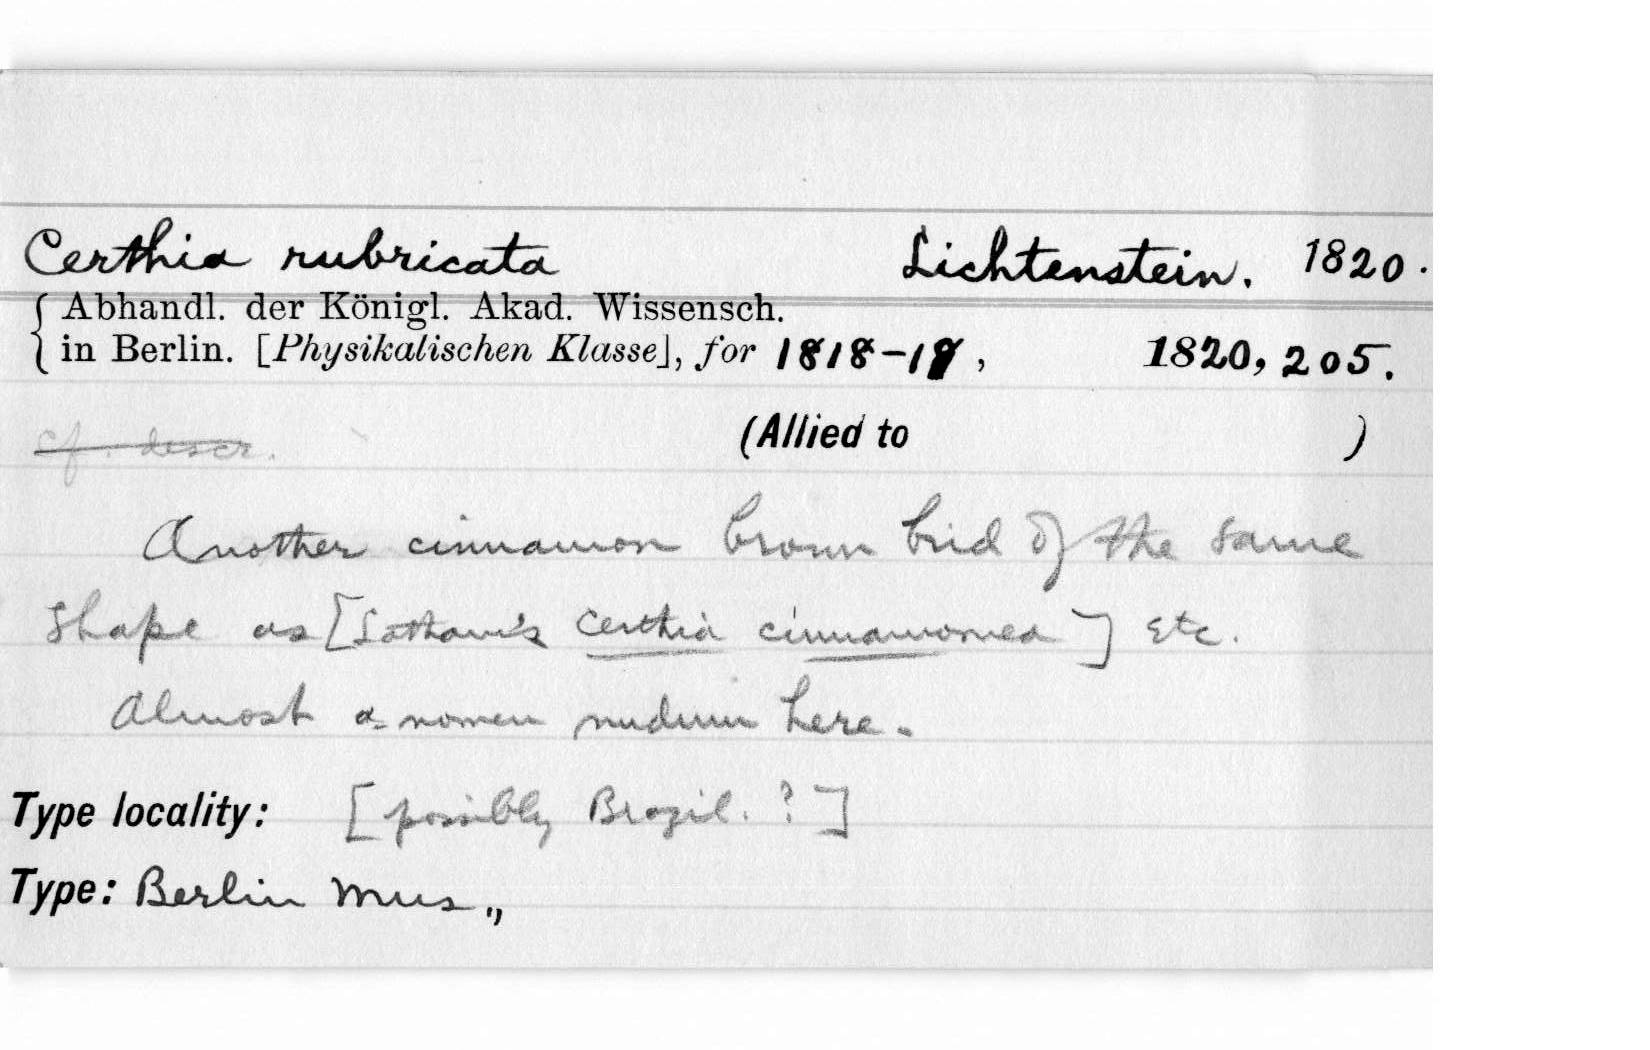 Certhia rubricata Lichtenstein. 1820.
{ Abhandl. der Königl. Akad. Wissensch.
in Berlin. [Physikalischen Klasse], for 1818-19, 1820, 205.
cf. descr. (Allied to )
Another cinnamon brown bird of the same
shape as [Latham's Certhia cinnamomea] etc.
Almost a nomen nudum here.
Type locality: [possibly Brazil. ?]
Type: Berlin Mus.,